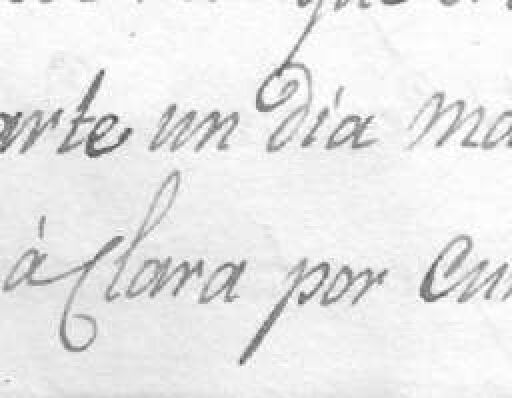 arte un dia ma
à Clara por Cur